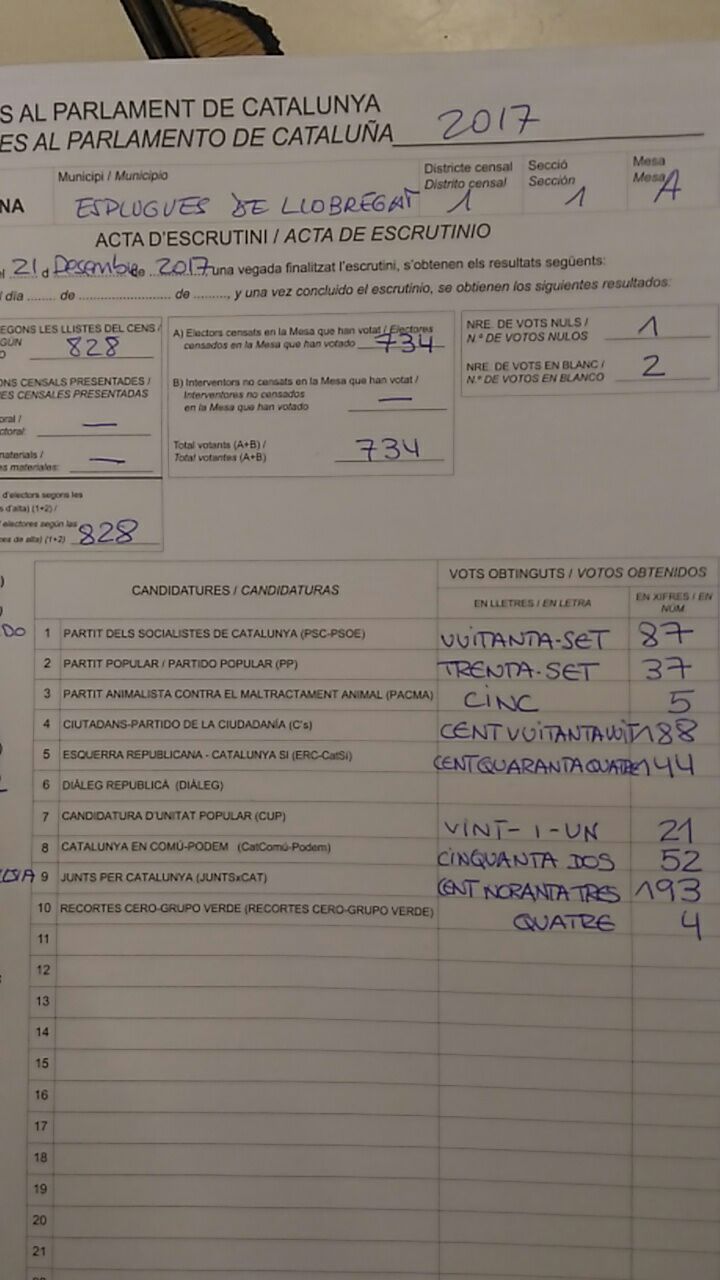 S AL PARLAMENT DE CATALUNYA
ES AL PARLAMENTO DE CATALUÑA 2017
Municipi / Municipio
Districte censal
Distrito censal
Secció
Sección
Mesa
Mesa
NA ESPLUGUES DE LLOBREGAT 1 1 A
ACTA D'ESCRUTINI / ACTA DE ESCRUTINIO
el 21 d Desembre de 2017 una vegada finalitzat l'escrutini, s'obtenen els resultats següents:
día ........ de .......................... de ........, y una vez concluido el escrutinio, se obtienen los siguientes resultados:
EGONS LES LLISTES DEL CENS /
GÚN
O 828
ONS CENSALS PRESENTADES /
ES CENSALES PRESENTADAS
oral /
ctoral: —
materials /
es materiales: —
d'electors segons les
s d'alta) (1+2) /
electores según las
es de alta) (1+2) 828
A) Electors censats en la Mesa que han votat / Electores
censados en la Mesa que han votado 734
B) Interventors no censats en la Mesa que han votat /
Interventores no censados
en la Mesa que han votado —
Total votants (A+B) /
Total votantes (A+B) 734
NRE. DE VOTS NULS /
N.º DE VOTOS NULOS 1
NRE. DE VOTS EN BLANC /
N.º DE VOTOS EN BLANCO 2
CANDIDATURES / CANDIDATURAS
VOTS OBTINGUTS / VOTOS OBTENIDOS
EN LLETRES / EN LETRA
EN XIFRES / EN
NÚM
DO 1 PARTIT DELS SOCIALISTES DE CATALUNYA (PSC-PSOE) VUITANTA-SET 87
2 PARTIT POPULAR / PARTIDO POPULAR (PP) TRENTA-SET 37
3 PARTIT ANIMALISTA CONTRA EL MALTRACTAMENT ANIMAL (PACMA) CINC 5
4 CIUTADANS-PARTIDO DE LA CIUDADANÍA (C's) CENT VUITANTA VUIT 188
5 ESQUERRA REPUBLICANA - CATALUNYA SÍ (ERC-CatSí) CENT QUARANTA QUATRE 144
6 DIÀLEG REPUBLICÀ (DIÀLEG)
7 CANDIDATURA D'UNITAT POPULAR (CUP) VINT-I-UN 21
8 CATALUNYA EN COMÚ-PODEM (CatComú-Podem) CINQUANTA DOS 52
9 JUNTS PER CATALUNYA (JUNTSxCAT) CENT NORANTA TRES 193
10 RECORTES CERO-GRUPO VERDE (RECORTES CERO-GRUPO VERDE) QUATRE 4
11
12
13
14
15
16
17
18
19
20
21